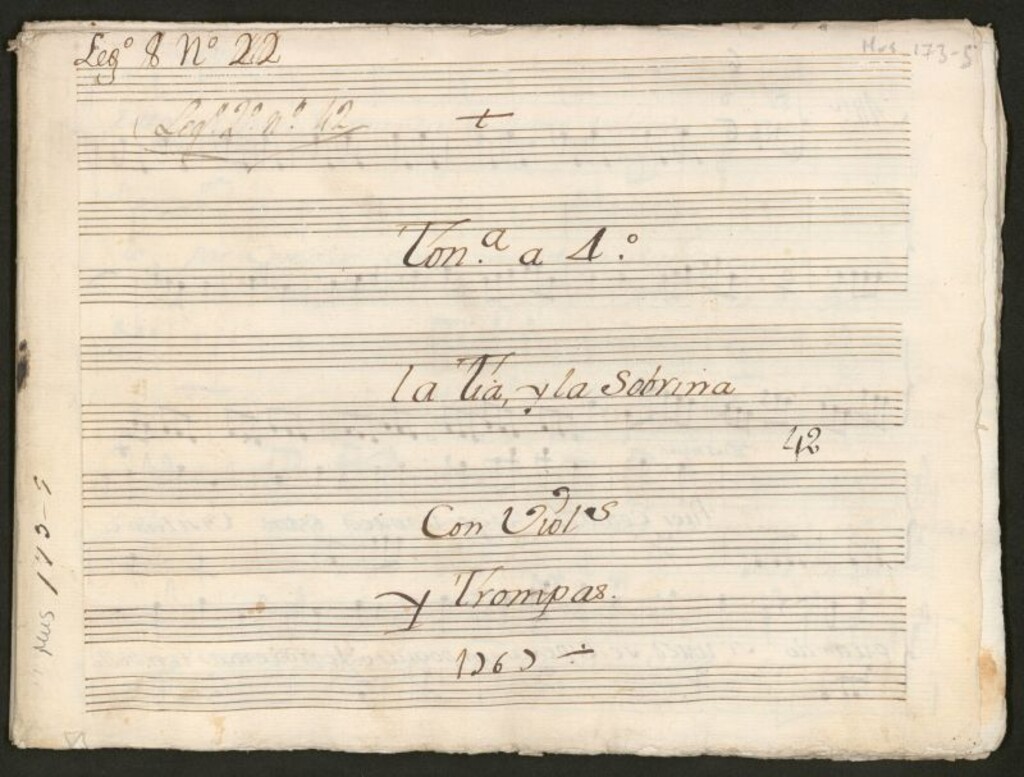 Leg.º 8 Nº 22
Mus 173-5
Leg.º 2º n.º 42
Ton.ª a 4.º
la Tia, y la Sobrina
42
Con Viol.s
y Trompas.
1767
Mus 173-5